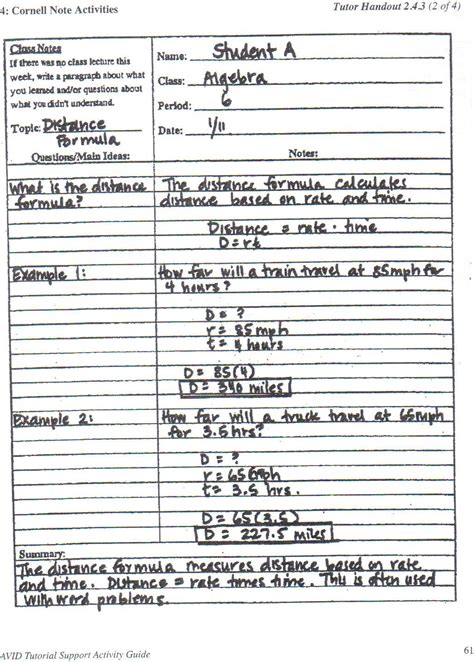 4: Cornell Note Activities
Tutor Handout 2.4.3 (2 of 4)
Class Notes
If there was no class lecture this
week, write a paragraph about what
you learned and/or questions about
what you didn't understand.
Topic: Distance
Formula
Questions/Main Ideas:
Name: Student A
Class: Algebra
Period: 6
Date: 1/11
Notes:
What is the distance
formula?
The distance formula calculates
distance based on rate and time.
Distance = rate · time
D = rt
Example 1:
How far will a train travel at 85mph for
4 hours?
D = ?
r = 85 mph
t = 4 hours
D = 85(4)
D = 340 miles
Example 2:
How far will a truck travel at 65mph
for 3.5hrs?
D = ?
r = 65mph
t = 3.5 hrs.
D = 65(3.5)
D = 227.5 miles
Summary:
The distance formula measures distance based on rate
and time. Distance = rate times time. This is often used
with word problems.
AVID Tutorial Support Activity Guide
61